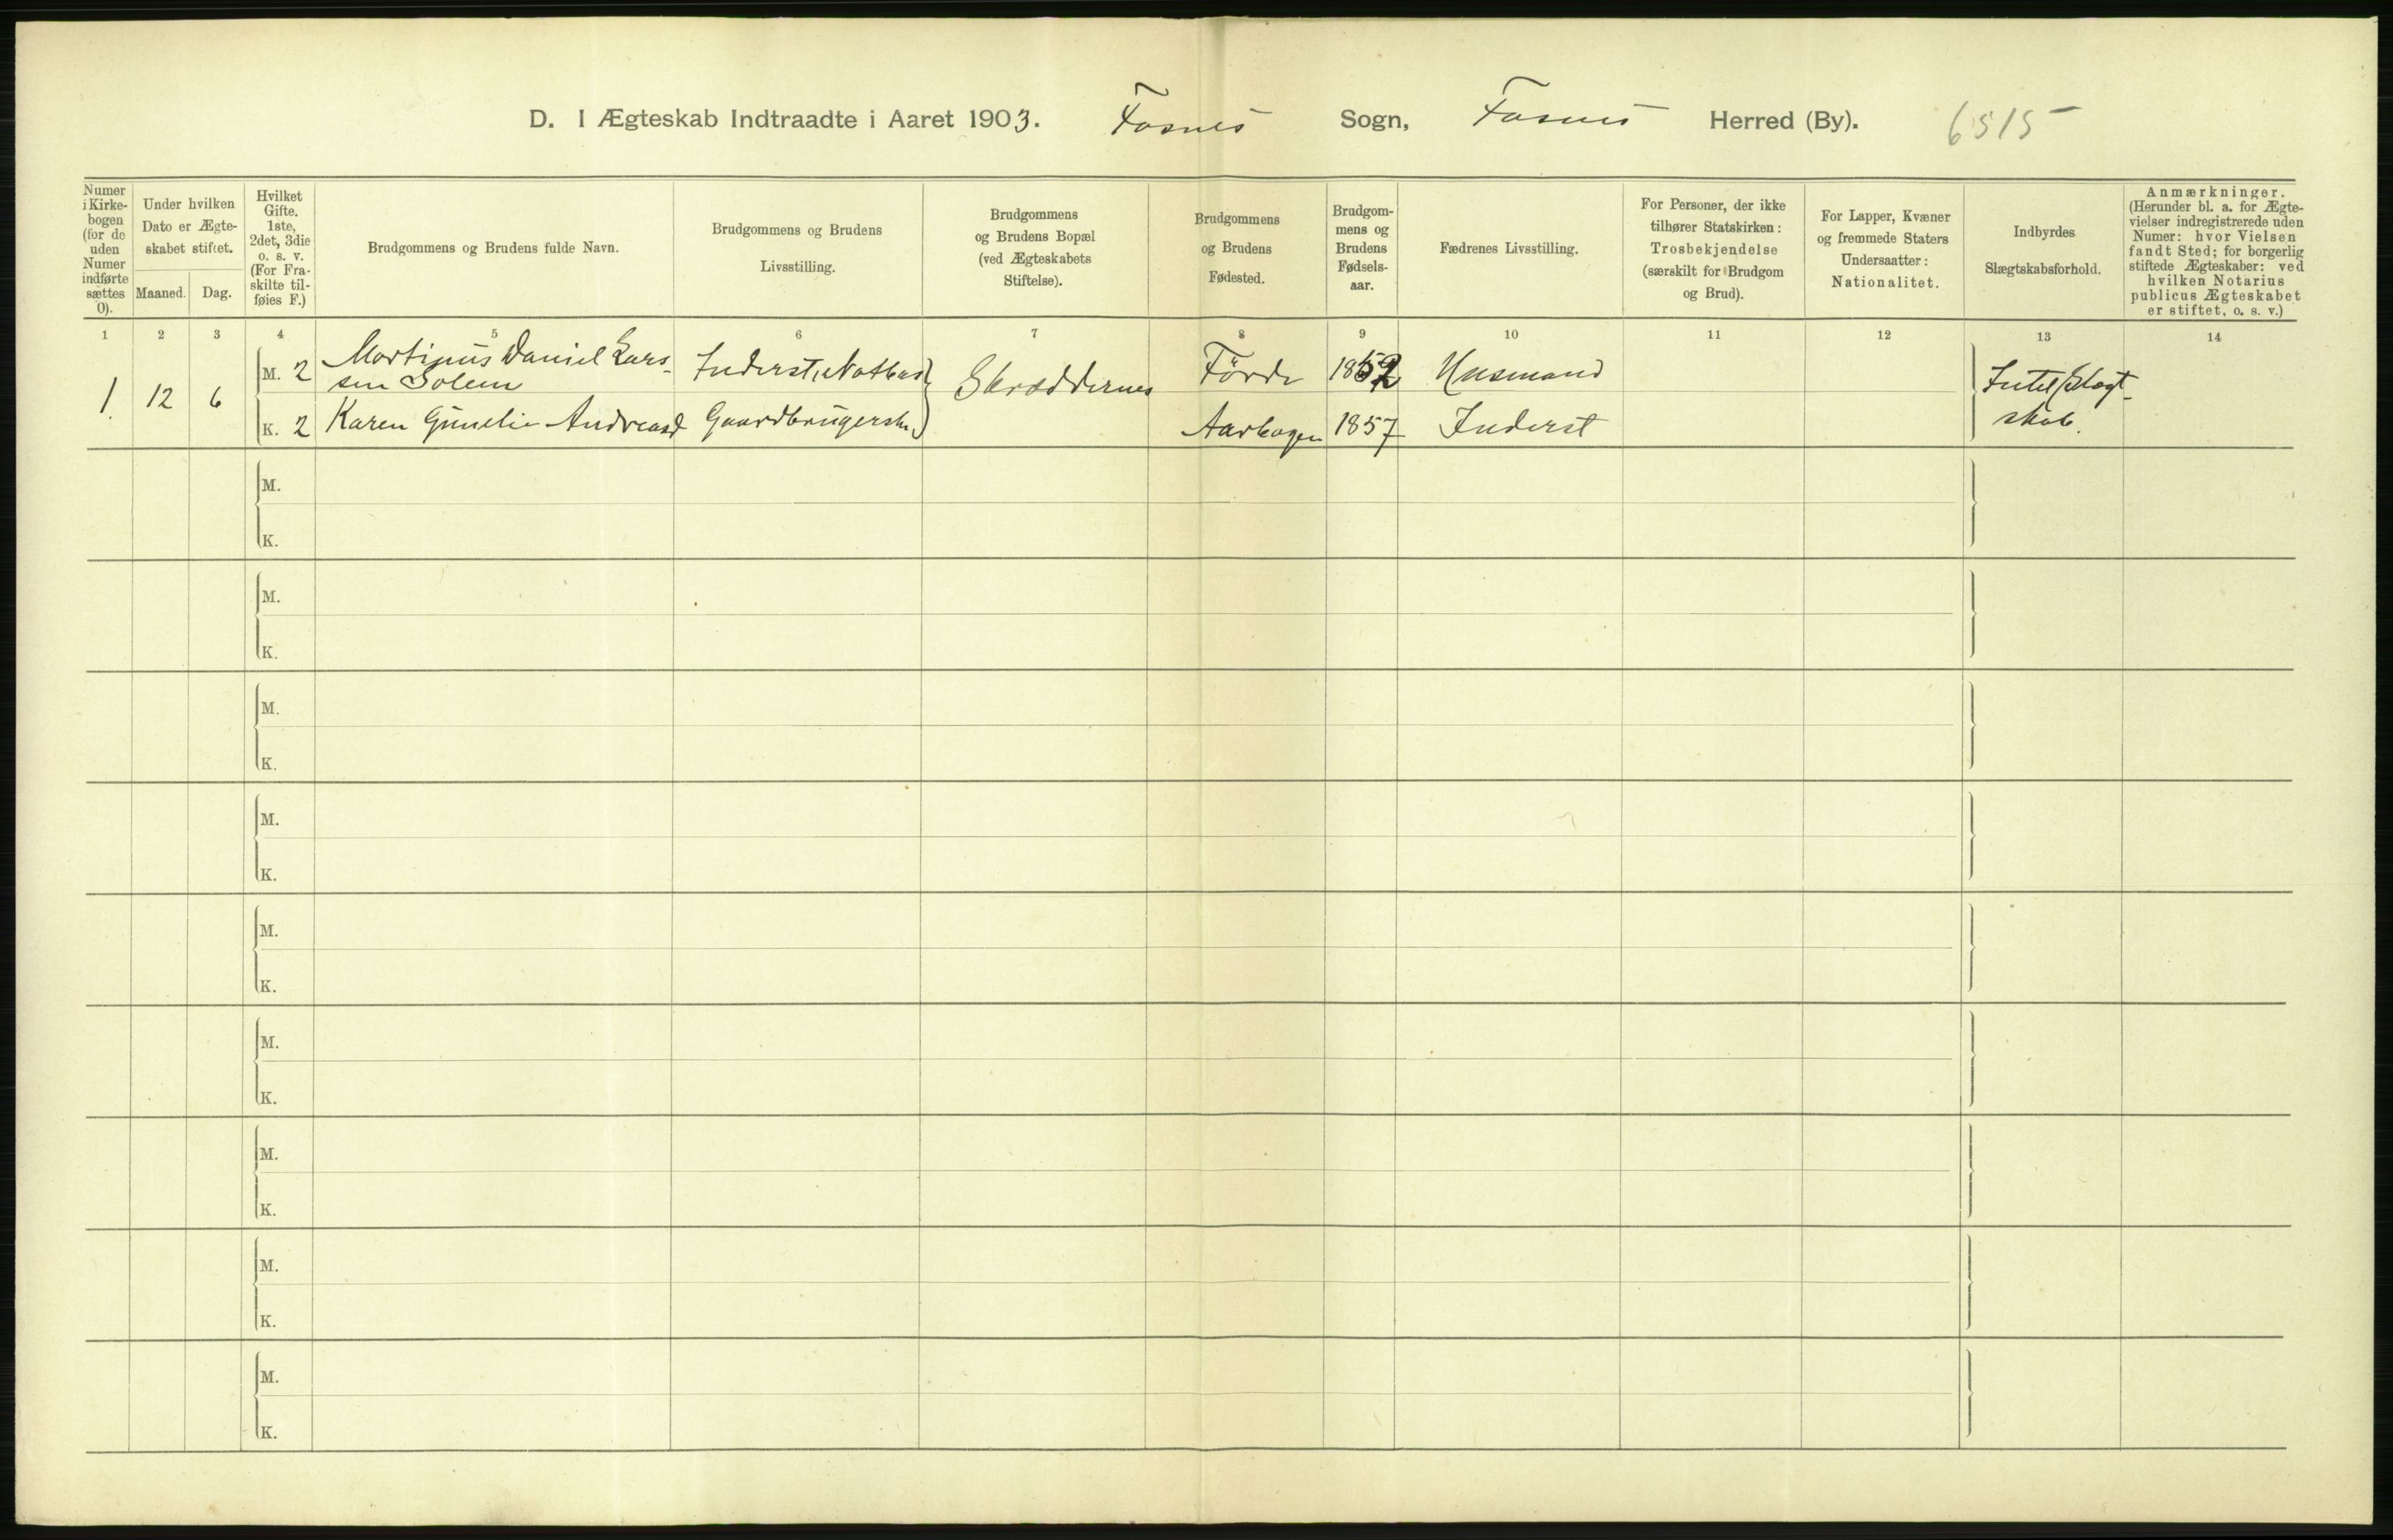 D. I Ægteskab Indtraadte i Aaret 1903. Fosnes Sogn, Fosnes Herred (By). 6515
Numer i Kirke-bogen (for de uden Numer indførte sættes 0).
Under hvilken Dato er Ægte-skabet stiftet.
Maaned. Dag.
Hvilket Gifte. 1ste, 2det, 3die o. s. v. (For Fra-skilte til-føies F.)
Brudgommens og Brudens fulde Navn.
Brudgommens og Brudens Livsstilling.
Brudgommens og Brudens Bopæl (ved Ægteskabets Stiftelse).
Brudgommens og Brudens Fødested.
Brudgom-mens og Brudens Fødsels-aar.
Fædrenes Livsstilling.
For Personer, der ikke tilhører Statskirken: Trosbekjendelse (særskilt for Brudgom og Brud).
For Lapper, Kvæner og fremmede Staters Undersaatter: Nationalitet.
Indbyrdes Slægtskabsforhold.
Anmærkninger. (Herunder bl. a. for Ægte-vielser indregistrerede uden Numer: hvor Vielsen fandt Sted; for borgerlig stiftede Ægteskaber: ved hvilken Notarius publicus Ægteskabet er stiftet, o. s. v.)
1 2 3 4 5 6 7 8 9 10 11 12 13 14
1. 12 6
M. 2 Martinus Daniel Lars-
sen Solem Inderst, Skræddernes Förde 1852 Husmand Intet Slægt-
skab.
K. 2 Karen Gunelie Andreasd Gaardbrugerske Aarbogen 1857 Inderst
M.
K.
M.
K.
M.
K.
M.
K.
M.
K.
M.
K.
M.
K.
M.
K.
M.
K.